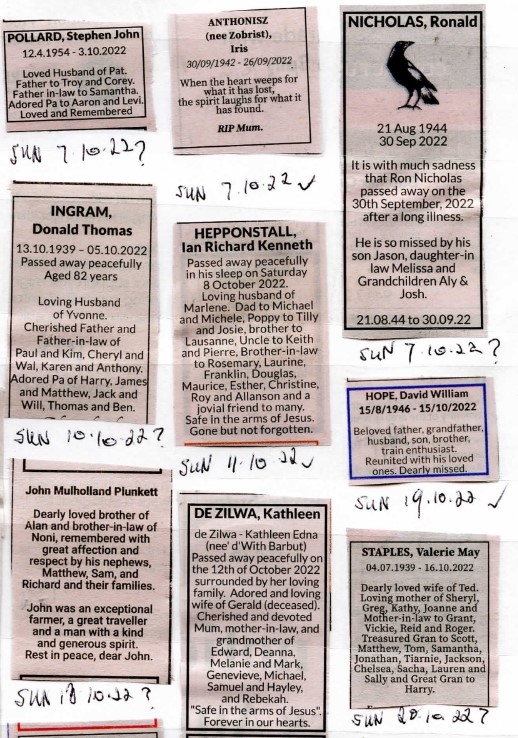 POLLARD, Stephen John
12.4.1954 - 3.10.2022
Loved Husband of Pat.
Father to Troy and Corey.
Father in-law to Samantha.
Adored Pa to Aaron and Levi.
Loved and Remembered
SUN 7.10.22?
ANTHONISZ
(nee Zobrist),
Iris
30/09/1942 - 26/09/2022
When the heart weeps for
what it has lost,
the spirit laughs for what it
has found.
RIP Mum.
SUN 7.10.22 ✓
NICHOLAS, Ronald
21 Aug 1944
30 Sep 2022
It is with much sadness
that Ron Nicholas
passed away on the
30th September, 2022
after a long illness.
He is so missed by his
son Jason, daughter-in
law Melissa and
Grandchildren Aly &
Josh.
21.08.44 to 30.09.22
SUN 7.10.22?
INGRAM,
Donald Thomas
13.10.1939 – 05.10.2022
Passed away peacefully
Aged 82 years
Loving Husband
of Yvonne.
Cherished Father and
Father-in-law of
Paul and Kim, Cheryl and
Wal, Karen and Anthony.
Adored Pa of Harry, James
and Matthew, Jack and
Will, Thomas and Ben.
SUN 10.10.22?
HEPPONSTALL,
Ian Richard Kenneth
Passed away peacefully
in his sleep on Saturday
8 October 2022.
Loving husband of
Marlene. Dad to Michael
and Michele, Poppy to Tilly
and Josie, brother to
Lausanne, Uncle to Keith
and Pierre, Brother-in-law
to Rosemary, Laurine,
Franklin, Douglas,
Maurice, Esther, Christine,
Roy and Allanson and a
jovial friend to many.
Safe in the arms of Jesus.
Gone but not forgotten.
SUN 11.10.22 ✓
HOPE, David William
15/8/1946 - 15/10/2022
Beloved father, grandfather,
husband, son, brother,
train enthusiast.
Reunited with his loved
ones. Dearly missed.
SUN 19.10.22 ✓
John Mulholland Plunkett
Dearly loved brother of
Alan and brother-in-law of
Noni, remembered with
great affection and
respect by his nephews,
Matthew, Sam, and
Richard and their families.
John was an exceptional
farmer, a great traveller
and a man with a kind
and generous spirit.
Rest in peace, dear John.
SUN 10.22?
DE ZILWA, Kathleen
de Zilwa - Kathleen Edna
(nee' d'With Barbut)
Passed away peacefully on
the 12th of October 2022
surrounded by her loving
family. Adored and loving
wife of Gerald (deceased).
Cherished and devoted
Mum, mother-in-law, and
grandmother of
Edward, Deanna,
Melanie and Mark,
Genevieve, Michael,
Samuel and Hayley,
and Rebekah.
"Safe in the arms of Jesus".
Forever in our hearts.
STAPLES, Valerie May
04.07.1939 - 16.10.2022
Dearly loved wife of Ted.
Loving mother of Sheryl,
Greg, Kathy, Joanne and
Mother-in-law to Grant,
Vickie, Reid and Roger.
Treasured Gran to Scott,
Matthew, Tom, Samantha,
Jonathan, Tiarnie, Jackson,
Chelsea, Sacha, Lauren and
Sally and Great Gran to
Harry.
SUN 20.10.22?